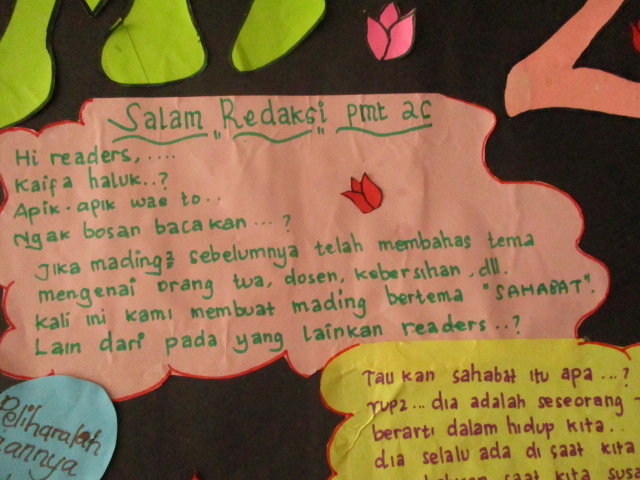 Salam "Redaksi" pmt 2c
Hi readers,....
Kaifa haluk..?
Apik-apik wae to..
Ngak bosan bacakan ...?
Jika mading2 sebelumnya telah membahas tema
mengenai orang tua, dosen, kebersihan, dll.
kali ini kami membuat mading bertema "SAHABAT".
Lain dari pada yang lainkan readers..?
Tau kan sahabat itu apa ...?
Yupz... dia adalah seseorang
berarti dalam hidup kita.
dia selalu ada di saat kita
saat kita susa
Peliharalah